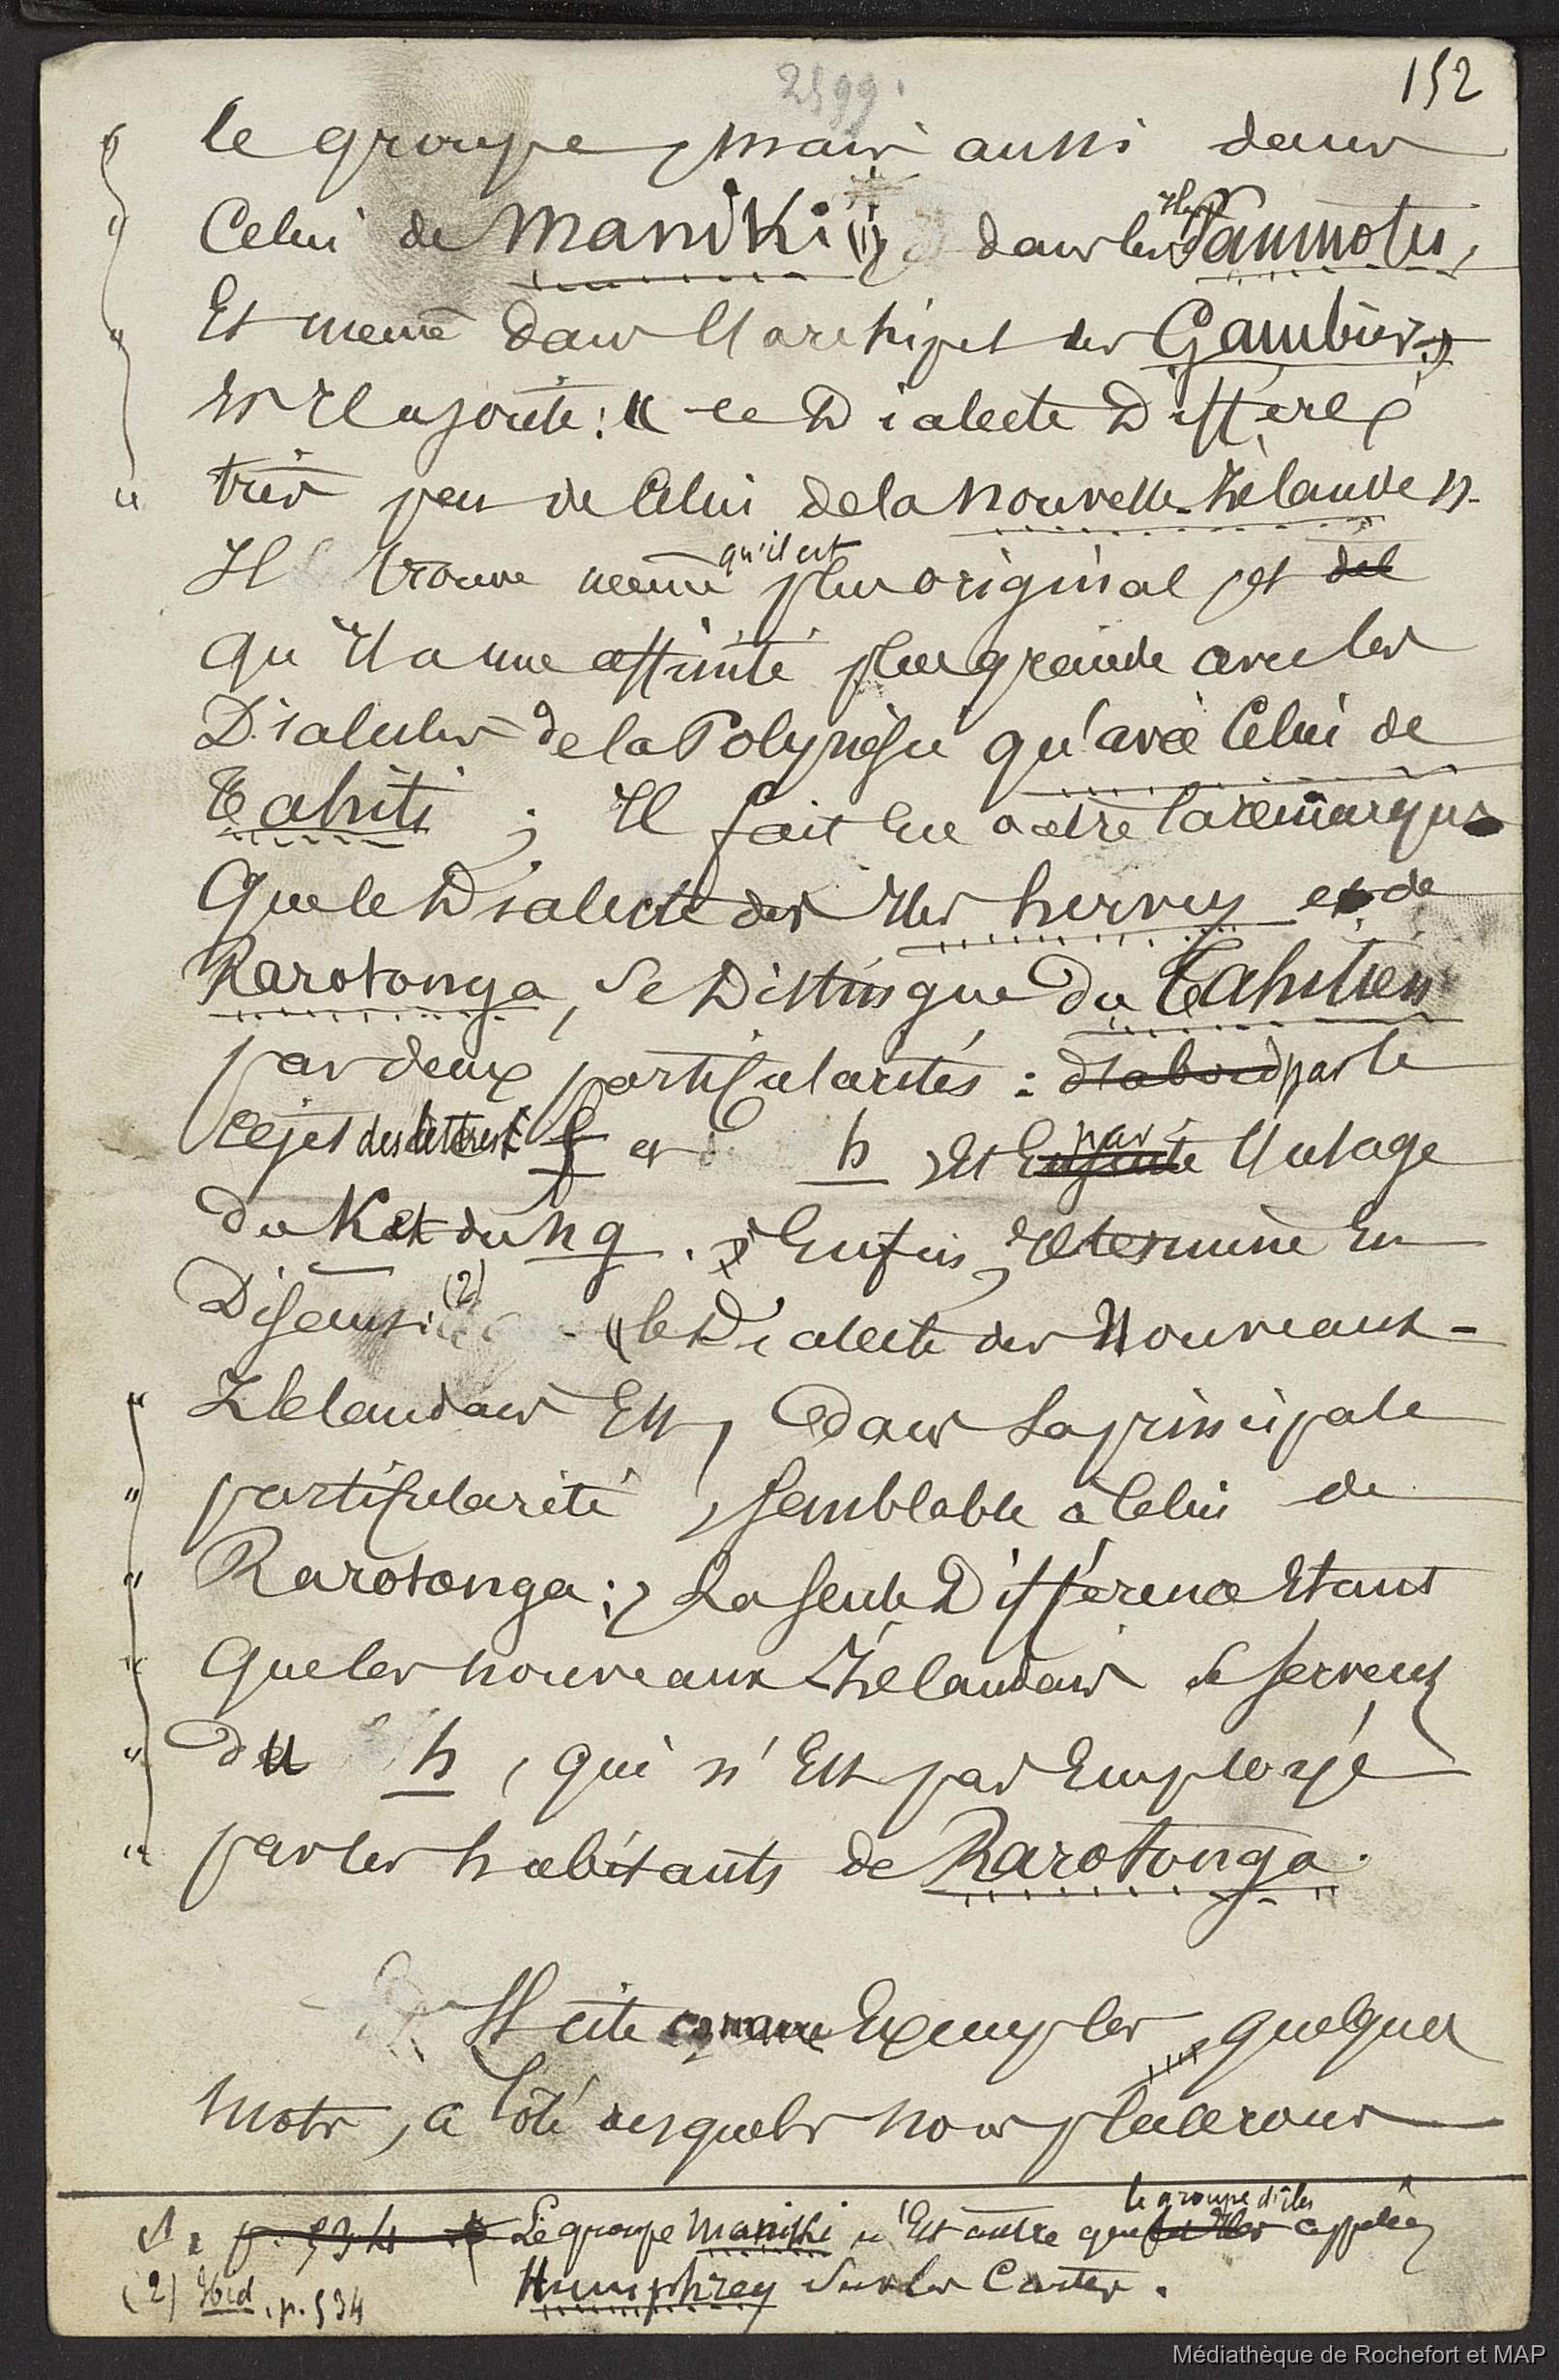 2599.
152
" le groupe, mais aussi dans
" Celui de Maniki (1), dans les Iles Paumotu,
" Et même dans l'archipel des Gambier »
Et Il ajoute : « ce Dialecte Diffère
" très peu de Celui de la Nouvelle-Zélande ».
Il trouve même qu'il est plus original, et
qu'Il a une affinité plus grande avec les
Dialectes de la Polynésie qu'avec Celui de
Tahiti ; Il fait en outre la remarque
Que le Dialecte des Iles hervey et de
Rarotonga, se Distingue du Tahitien
par deux particularités : d'abord par le
rejet des lettres f et h, Et Ensuite par l'usage
du K et du ng. Enfin, Il termine En
Disant : (2) « le Dialecte des Nouveaux-
" Zélandais Est, dans sa principale
" particularité, semblable à Celui de
" Rarotonga ; La seule Différence Etant
" Que les nouveaux Zélandais se servent
" du h, qui n'Est pas Employé
" par les habitants de Rarotonga.
Il cite comme Exemples, quelques
mots, a Côté desquels nous placerons
1. p. 534 Le groupe Maniki n'Est autre que les Iles le groupe d'îles appelées
Humphrey sur les Cartes.
(2) Ibid, p. 534
Médiathèque de Rochefort et MAP